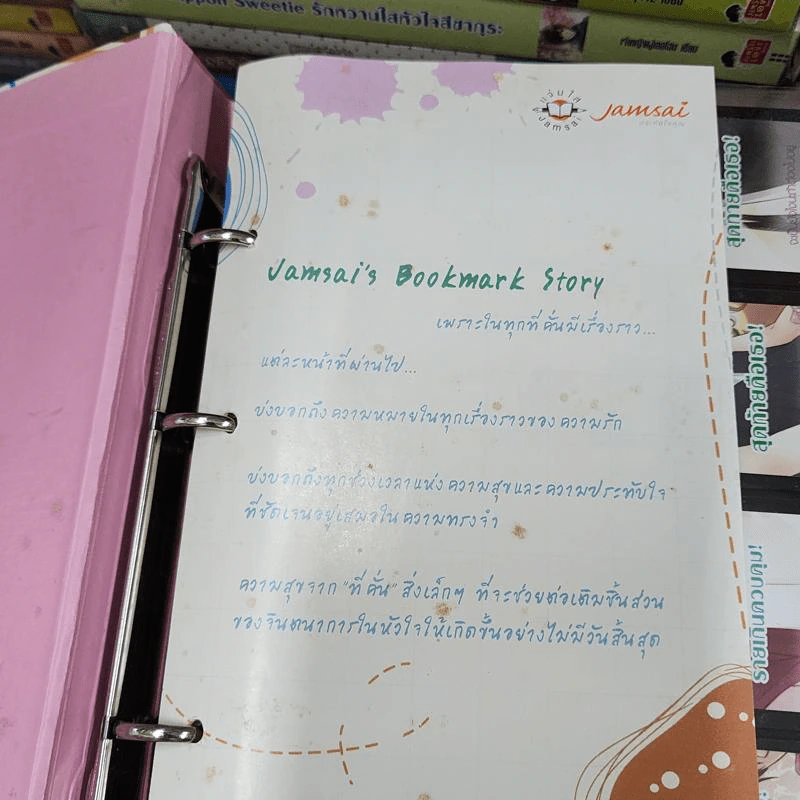 ppon Sweetie รักหวานใสหัวใจสีซากุระ
แจ่มใส
Jamsai
Jamsai
Jamsai's Bookmark Story
เพราะในทุกที่คั่นมีเรื่องราว...
แต่ละหน้าที่ผ่านไป...
บ่งบอกถึงความหมายในทุกเรื่องราวของความรัก
บ่งบอกถึงทุกช่วงเวลาแห่งความสุขและความประทับใจ
ที่ชัดเจนอยู่เสมอในความทรงจำ
ความสุขจาก "ที่คั่น" สิ่งเล็กๆ ที่จะช่วยต่อเติมชิ้นส่วน
ของจินตนาการในหัวใจให้เกิดขึ้นอย่างไม่มีวันสิ้นสุด